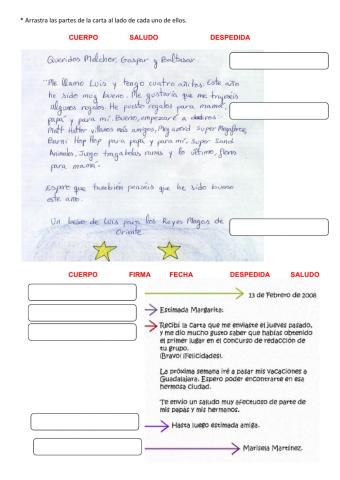 * Arrastra las partes de la carta al lado de cada uno de ellos.
CUERPO SALUDO DESPEDIDA
Queridos Melchor, Gaspar y Baltasar.
Me llamo Luis y tengo cuatro añitos. Este año
he sido muy bueno. Me gustaría que me trajerais
algunos regalos. He puesto regalos para mamá,
papá y para mí. Bueno, empezaré a deciros:
villanos más amigos, Megaforce,
Barni Hop Hop para papá y para mí, Super Sand
Animales, Juego tragabolas ranas y lo último, flores
para mamá.
Espero que también penséis que he sido bueno
este año.
Un beso de Luis para los Reyes Magos de
Oriente.
CUERPO FIRMA FECHA DESPEDIDA SALUDO
13 de Febrero de 2008
Estimada Margarita:
Recibí la carta que me enviaste el jueves pasado,
y me dio mucho gusto saber que habías obtenido
el primer lugar en el concurso de redacción de
tu grupo.
¡Bravo! ¡Felicidades!.
La próxima semana iré a pasar mis vacaciones a
Guadalajara. Espero poder encontrarte en esa
hermosa ciudad.
Te envío un saludo muy afectuoso de parte de
mis papás y mis hermanos.
Hasta luego estimada amiga.
Marisela Martínez.